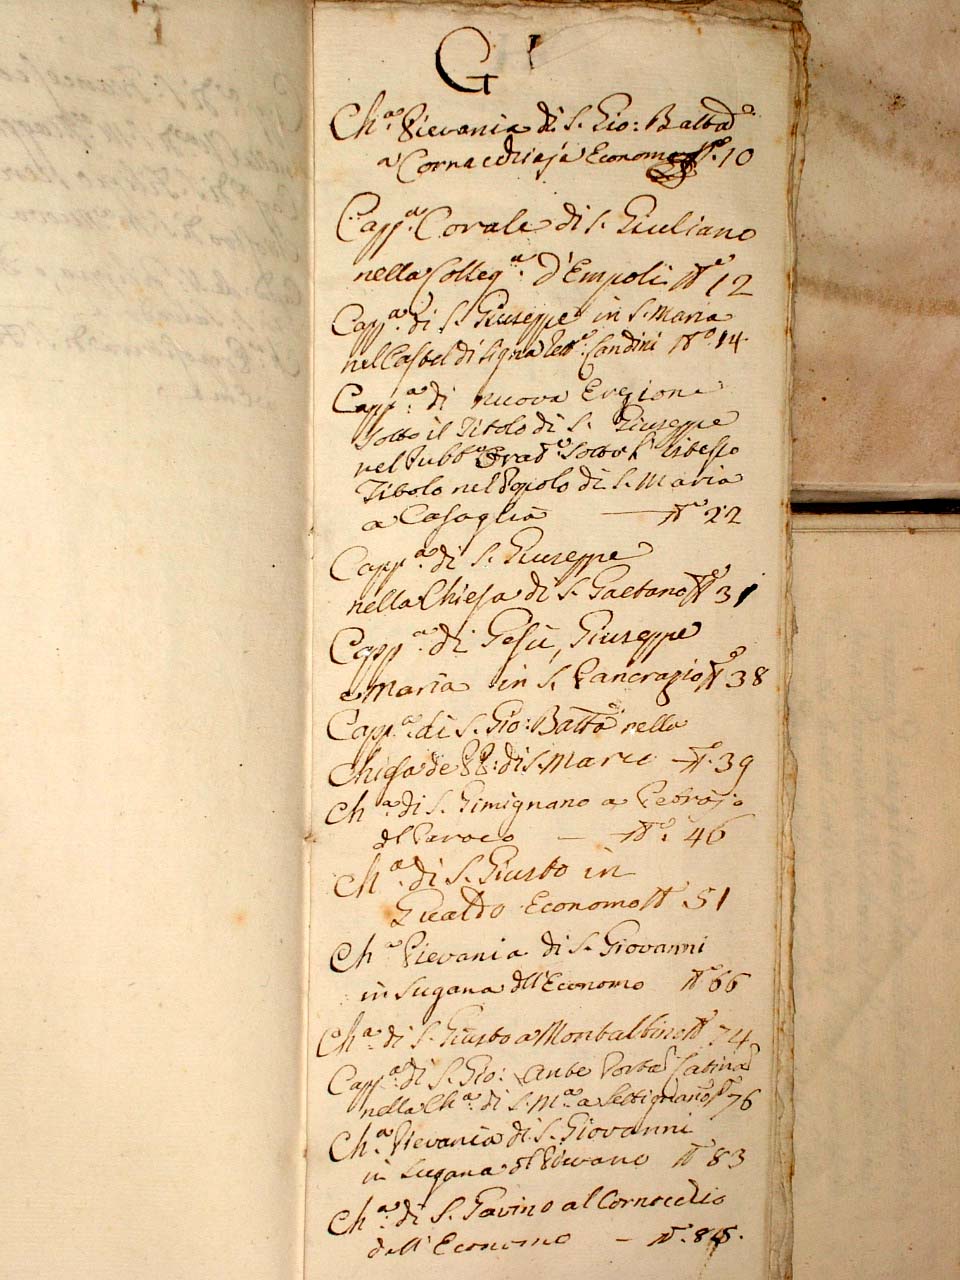 G
Ch.ª Pievania di S. Gio: Batta
a Cornacchiaja Economo N.º 10
Capp.ª Corale di S. Giuliano
nella Colleg.ª d'Empoli N.º 12
Capp.ª di S. Giuseppe in S. Maria
nel Castel di Signa Rett.º Landini N.º 14.
Capp.ª di nuova Erezione
sotto il Titolo di S. Giuseppe
nel Pubb.º Orat.º sotto l'istesso
Titolo nel Popolo di S. Maria
a Casaglia — N.º 22
Capp.ª di S. Giuseppe
nella Chiesa di S. Gaetano N.º 31
Capp.ª di Gesù, Giuseppe
e Maria in S. Pancrazio N.º 38
Capp.ª di S. Gio: Batta nella
Chiesa de PP: di S. Marco — N.º 39
Ch.ª di S. Gimignano a Petrojo
del Paroco — N.º 46
Ch.ª di S. Giusto in
Gualdo Economo N.º 51
Ch.ª Pievania di S. Giovanni
in Sugana dell'Economo N.º 66
Ch.ª di S. Giusto a Montalbino N.º 74
Capp.ª di S. Gio: Ante Portam Latinam
nella Ch.ª di S. M.ª a Settignano N.º 76
Ch.ª Pievania di S. Giovanni
in Sugana del Pievano N.º 83
Ch.ª di S. Gavino al Cornocchio
dell'Economo — N.º